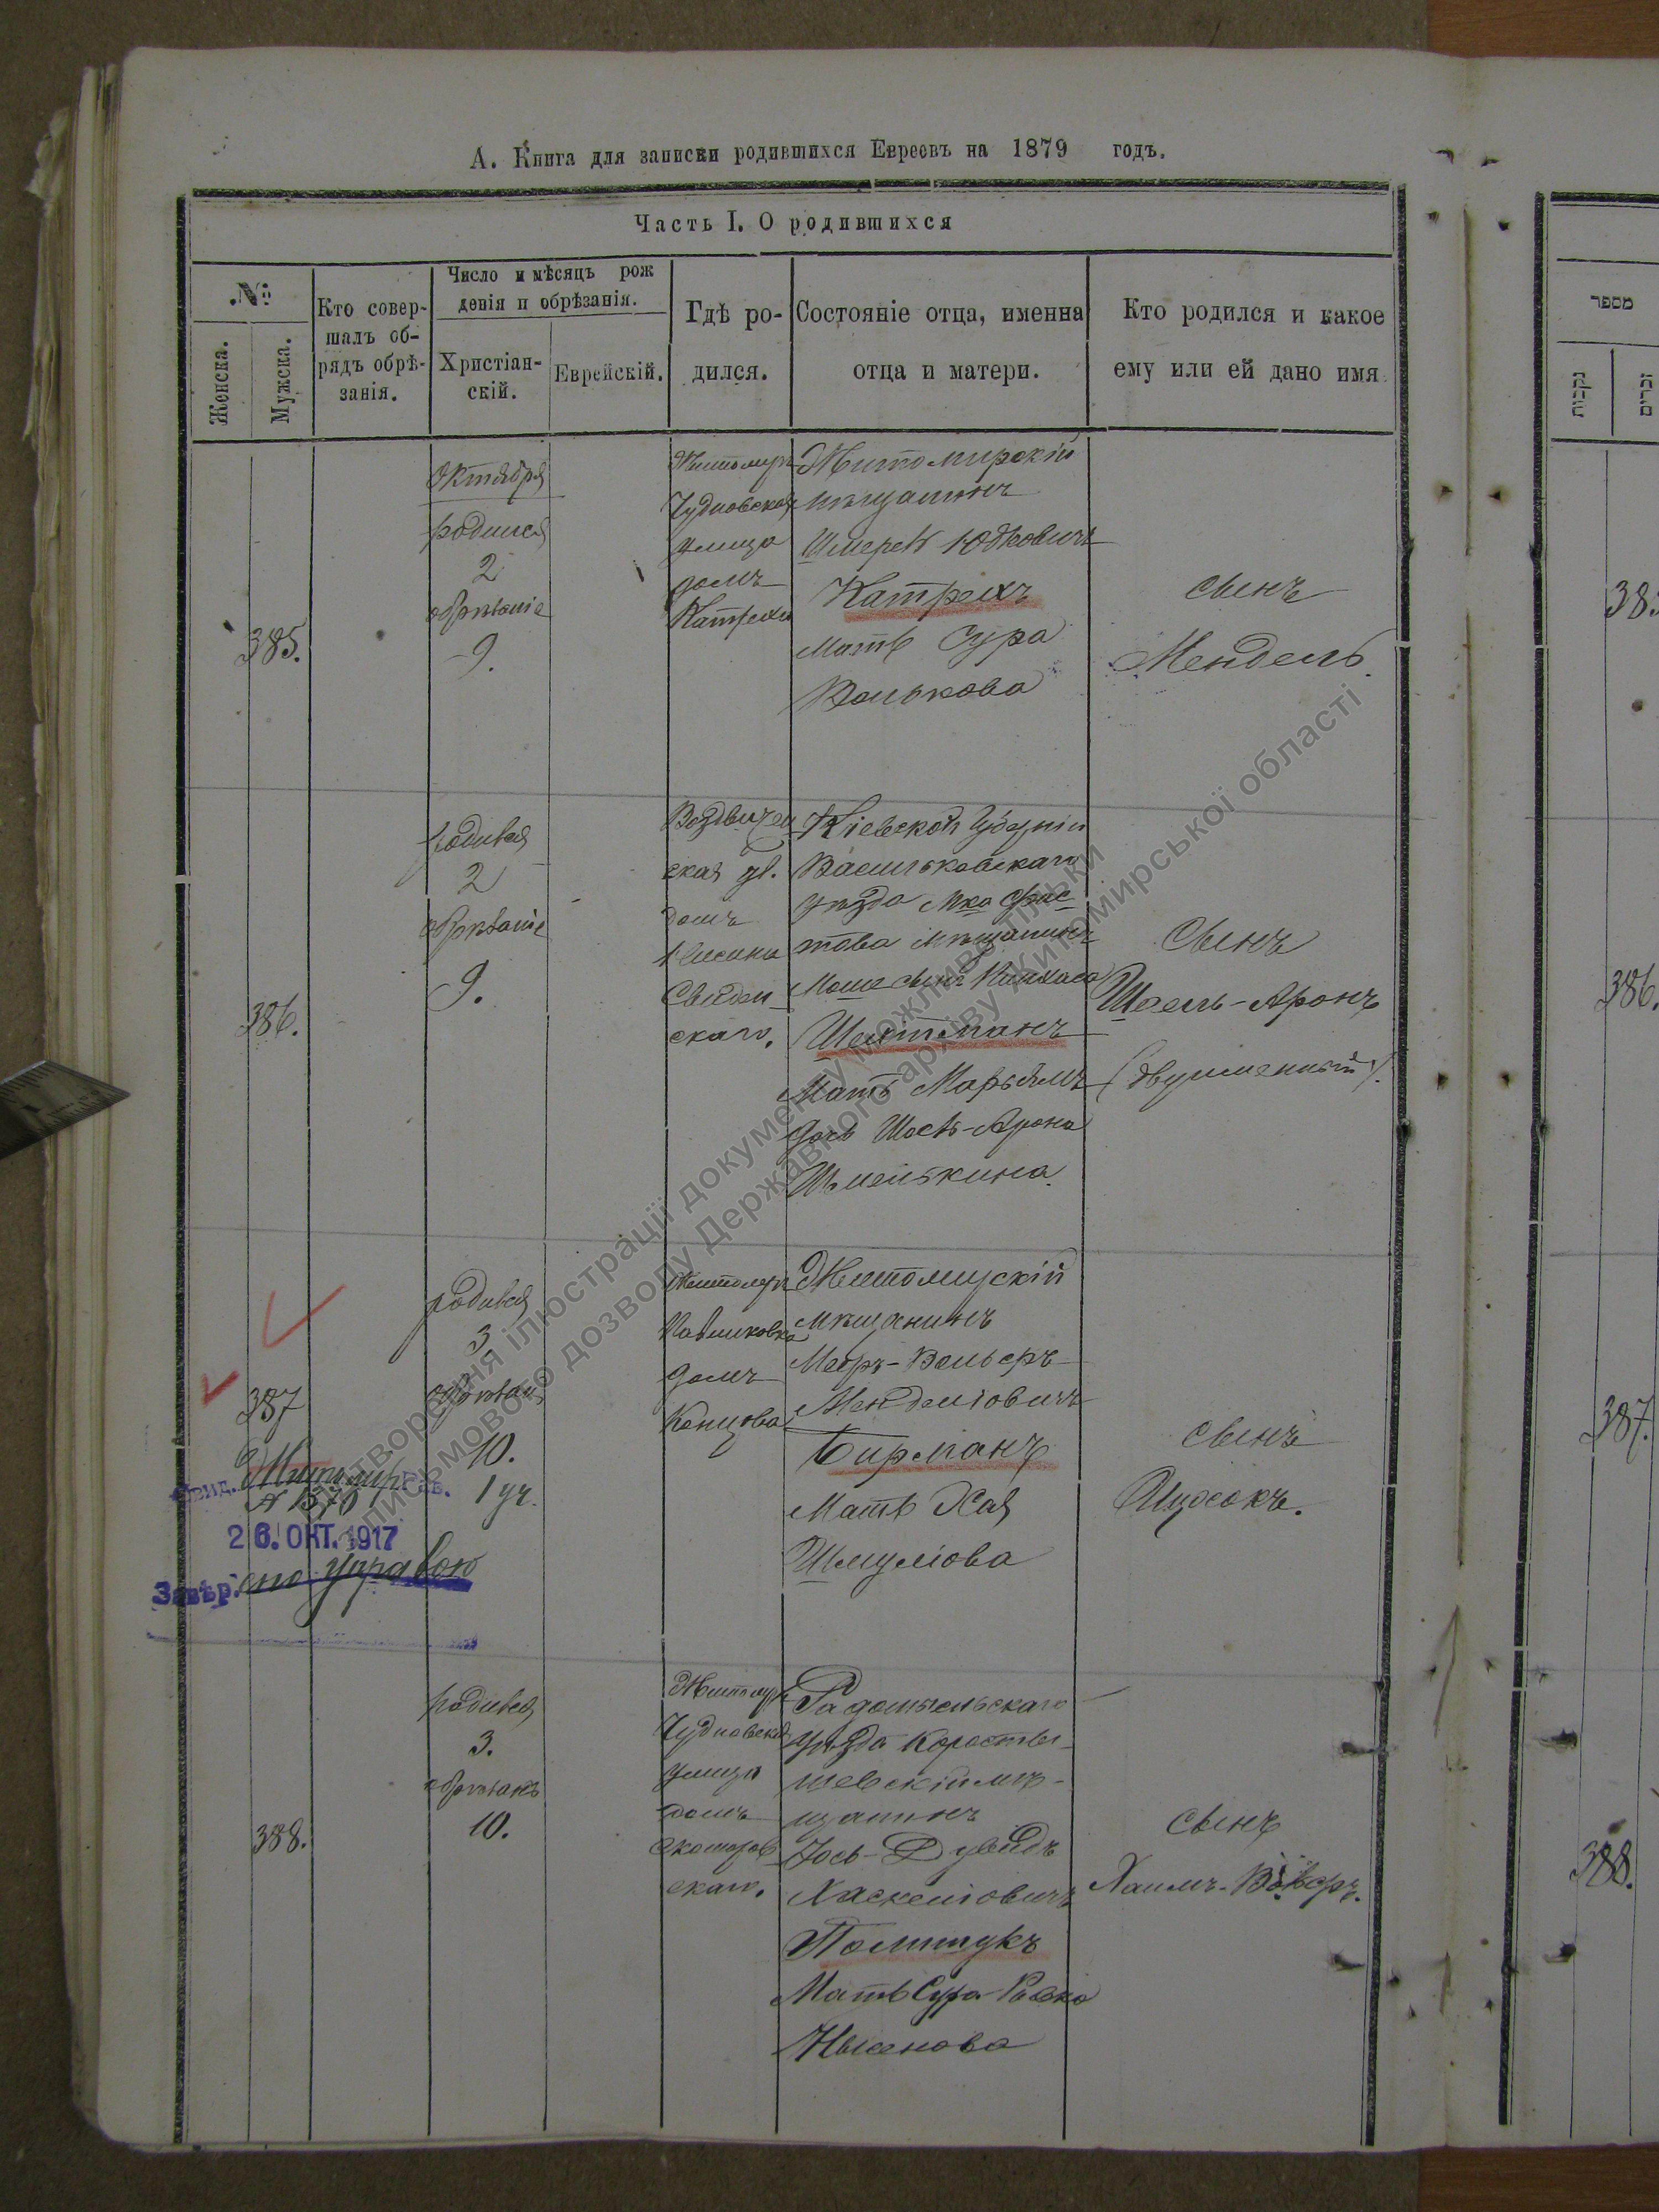 А. Книга для записки родившихся Евреевъ на 1879 годъ.
Часть I. О родившихся
№
Женска.
Мужска.
Кто совер-
шалъ об-
рядъ обрѣ-
занія.
Число и мѣсяцъ рож
денія и обрѣзанія.
Христіан-
скій.
Еврейскій.
Гдѣ ро-
дился.
Состояніе отца, именна
отца и матери.
Кто родился и какое
ему или ей дано имя
385.
Октября
родился
2
обрѣзаніе
9.
Житомиръ
Чудновская
улица
домъ
Катреха
Житомирскій
мѣщанинъ
Шмерк Юдковичъ
Катрехъ
Мать Сура
Волькова
сынъ
Мендель.
386.
родився
2
обрѣзаніе
9.
Воздвижен
ская ул.
домъ
скаго.
Кіевской Губерніи
Васильковскаго
уѣзда Мка Фас-
това мѣщанинъ
Моше сынъ Пинхаса
Шехтманъ
Мать Марьямъ
дочь Шаель-Арона
Сынъ
Шаель-Аронъ
(двуименный).
387
родився
3
обрѣзан
10.
1 уч.
Свид.
Житомир
№ 1370
26. ОКТ. 1917
Завѣр.
управою
Житомиръ
Павликовка
домъ
Житомирскій
мѣщанинъ
Мееръ-Вольфъ
Менделіовичъ
Бирманъ
Мать Хая
Шмуліова
сынъ
Ицхокъ.
388.
родився
3.
обрѣзанъ
10.
Житомиръ
Чудновская
улица
домъ
скаго.
Радомысльскаго
уѣзда Коросты-
шевскій мѣ-
щанинъ
Іось-Дувидъ
Хаскеліовичъ
Полищукъ
Мать Сура-Ривка
Нысенова
сынъ
Хаимъ-Вольфъ.
מספר
נקבות
זכרים
385
386.
387.
388.
Відтворення ілюстрації документу можливе тільки
з письмового дозволу Державного архіву Житомирської області